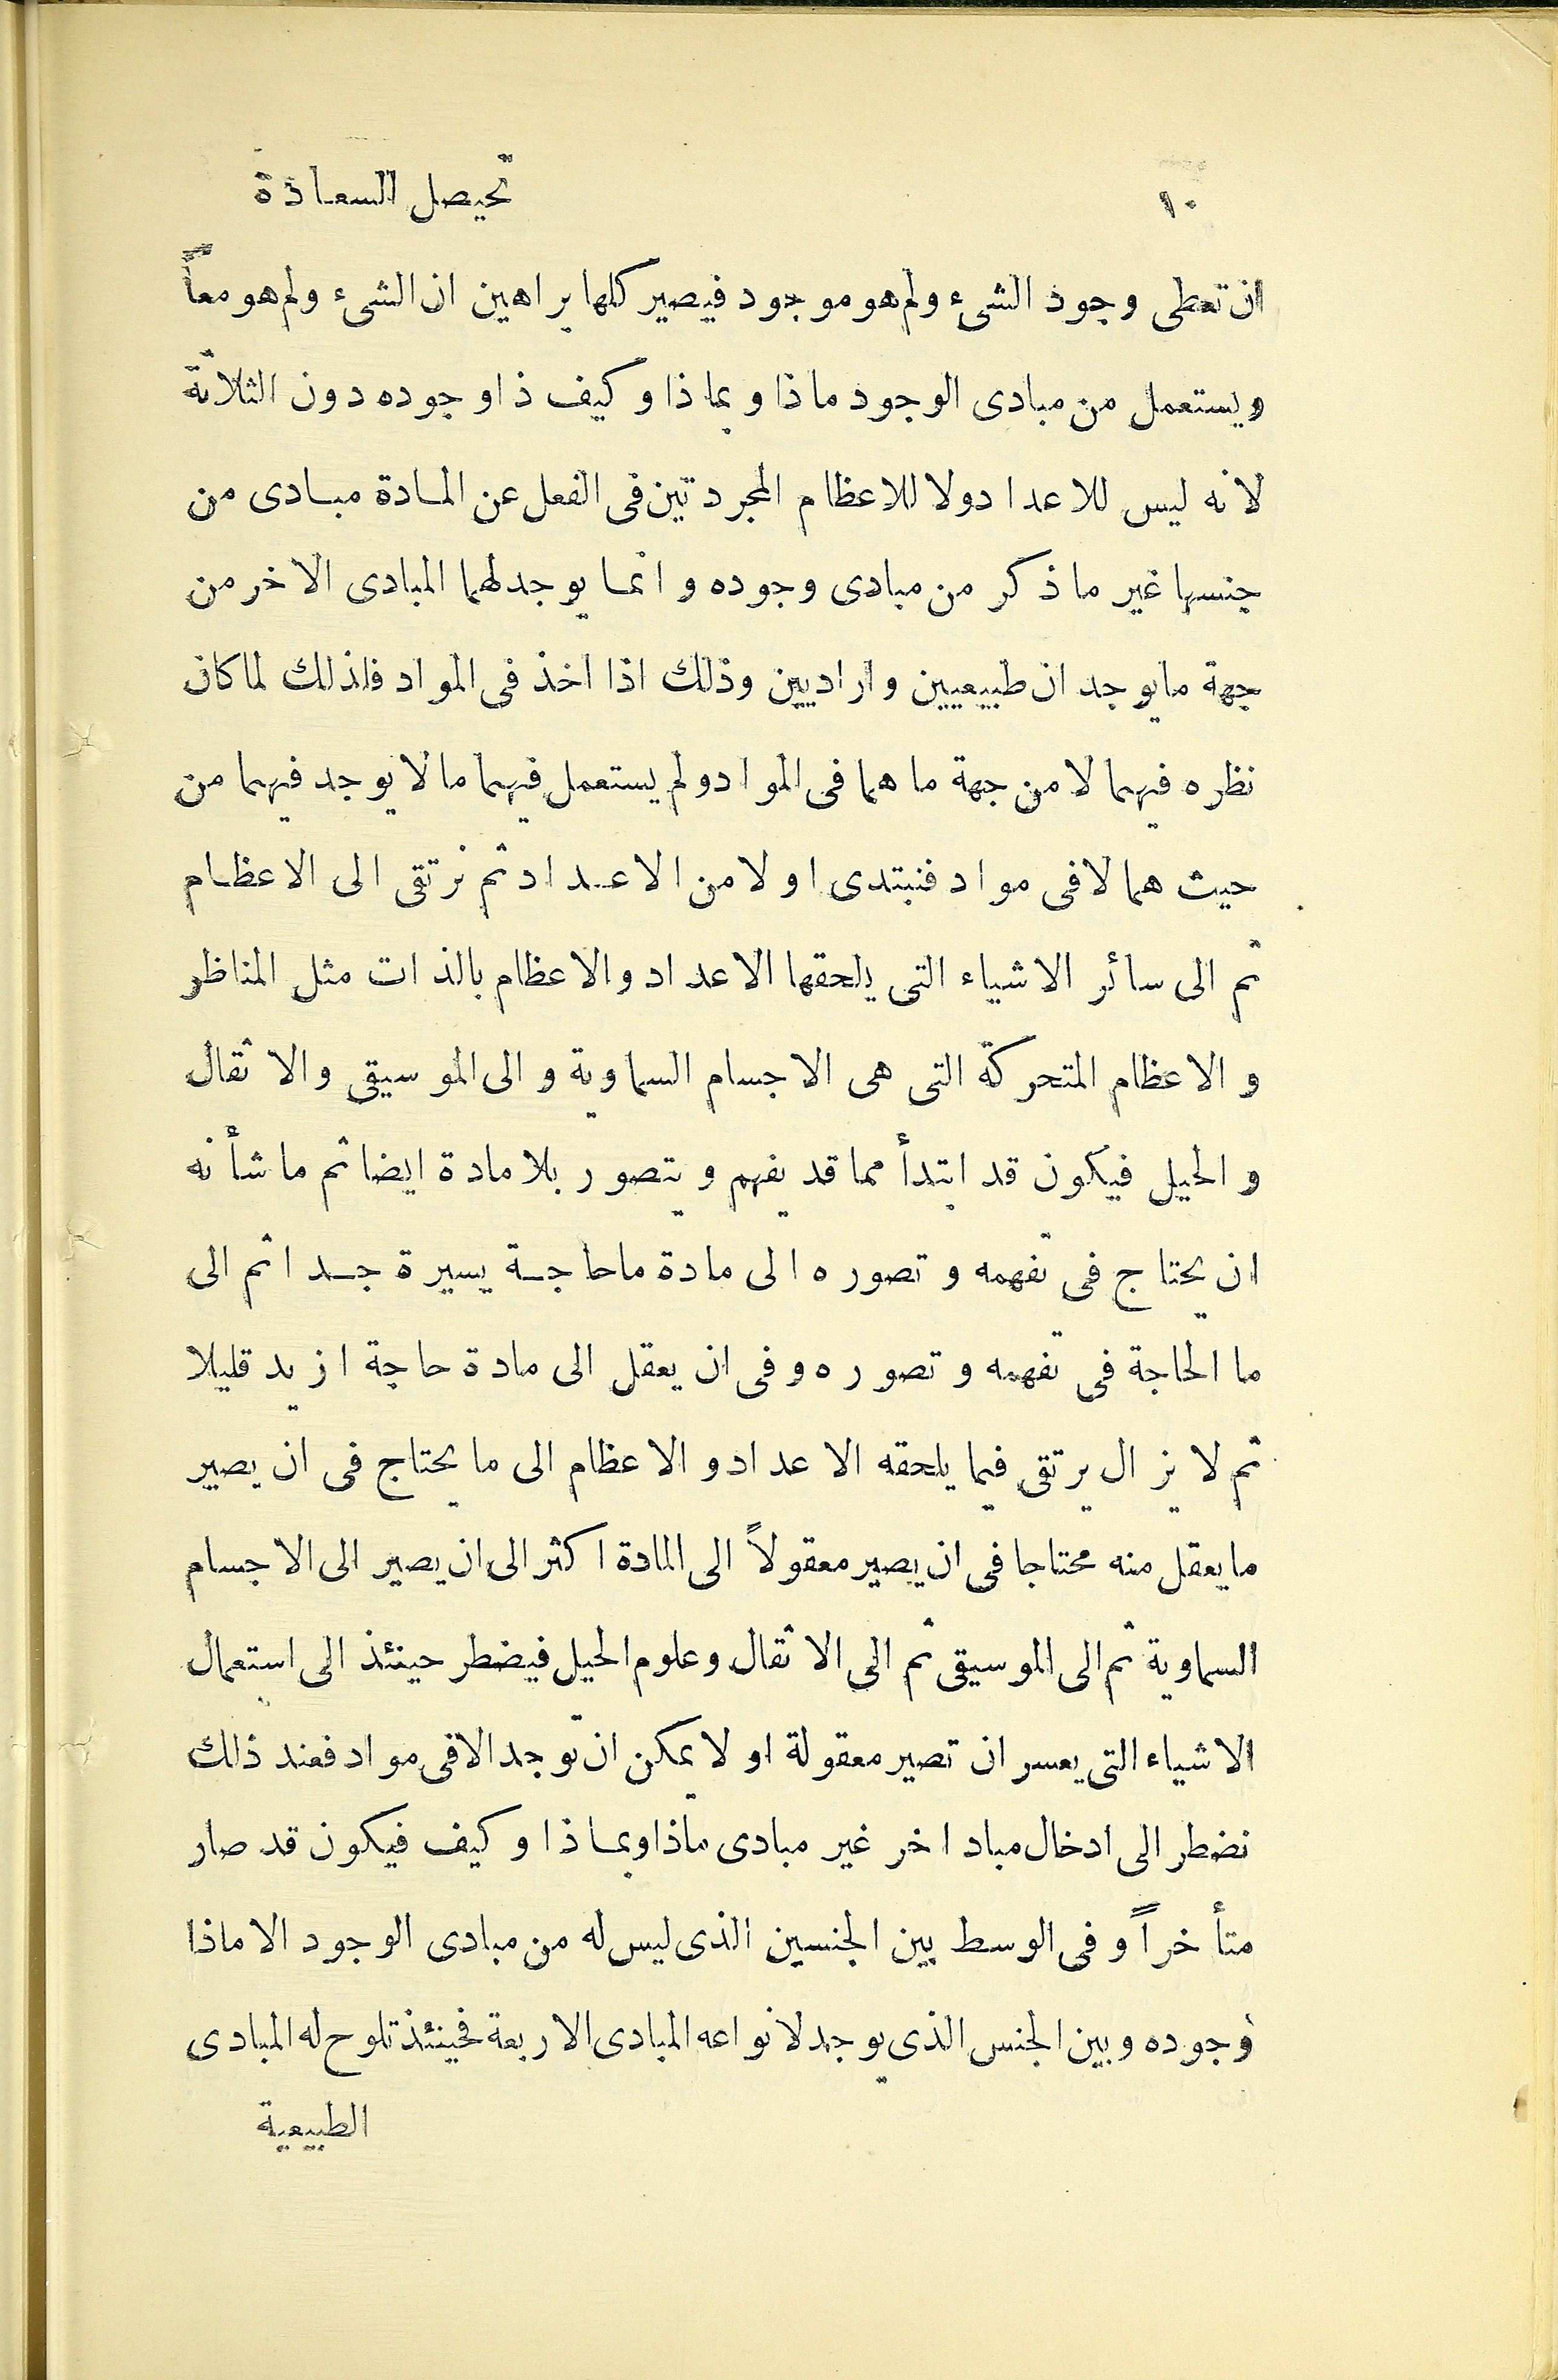 ١٠ تحيصل السعادة
ان تعطى وجود الشىء ولم هو موجود فيصير كلها براهين ان الشىء ولم هو معاً
ويستعمل من مبادى الوجود ماذا وبماذا وكيف ذا وجوده دون الثلاثة
لانه ليس للاعداد ولا للاعظام المجردتين فى الفعل عن المادة مبادى من
جنسها غير ما ذكر من مبادى وجوده وانما يوجد لهما المبادى الاخر من
جهة ما يوجدان طبيعيين واراديين وذلك اذا اخذ فى المواد فلذلك لما كان
نظره فيهما لا من جهة ما هما فى المواد ولم يستعمل فيهما ما لا يوجد فيهما من
حيث هما لا فى مواد فنبتدى اولا من الاعداد ثم نرتقى الى الاعظام
ثم الى سائر الاشياء التى يلحقها الاعداد والاعظام بالذات مثل المناظر
والاعظام المتحركة التى هى الاجسام السماوية والى الموسيقى والاثقال
والحيل فيكون قد ابتدأ مما قد يفهم ويتصور بلا مادة ايضا ثم ما شأنه
ان يحتاج فى تفهمه وتصوره الى مادة ما حاجة يسيرة جدا ثم الى
ما الحاجة فى تفهمه وتصوره وفى ان يعقل الى مادة حاجة ازيد قليلا
ثم لا يزال يرتقى فيما يلحقه الاعداد والاعظام الى ما يحتاج فى ان يصير
ما يعقل منه محتاجا فى ان يصير معقولاً الى المادة اكثر الى ان يصير الى الاجسام
السماوية ثم الى الموسيقى ثم الى الاثقال وعلوم الحيل فيضطر حينئذ الى استعمال
الاشياء التى يعسر ان تصير معقولة او لا يمكن ان توجد الا فى مواد فعند ذلك
نضطر الى ادخال مباد اخر غير مبادى ماذا وبماذا وكيف فيكون قد صار
متأخراً وفى الوسط بين الجنسين الذى ليس له من مبادى الوجود الا ماذا
وجوده وبين الجنس الذى يوجد لانواعه المبادى الاربعة فحينئذ تلوح له المبادى
الطبيعية